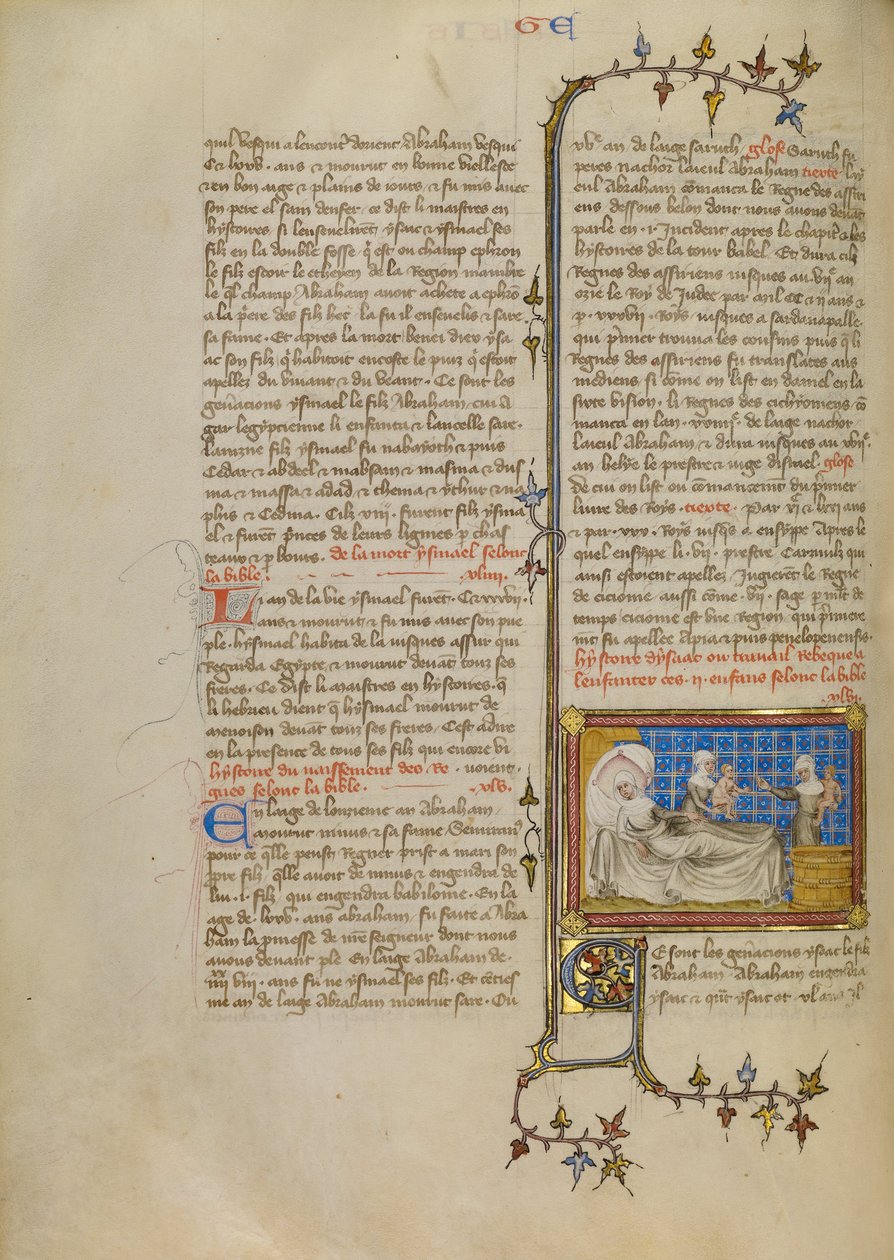 GE
quil vesqui a lencontre dorient Abraham vesqui
C & lxxv. ans & mourut en bonne viellesce
& en bon aige & plains de iours, & fu mis avec
son pere el sain denfer, ce dist li maistres en
hystoires. si lensevelirent ysaac & ysmael ses
filz en la double fosse. q̃ est ou champ ephron
le filz escoir le etheyen de la Region mambre
le q̃l champ, Abraham avoit achete a ephrõ
a la p̃ere des filz het. la fu il ensevelis & sare
sa fame. Et apres la mort, benei diex ysa
ac son filz, q̃ habitoit encoste le puiz q̃ estoit
apellez du vivant & du veant. Ce sont les
gen̄acions ysmael le filz Abraham, cui A
gar legypcienne li enfanta & lancelle sare.
lainzne filz ysmael fu nabayoth & puis
Cedar & abdeel & mabsam & masma & dus
ma & massa & adad & thema & ythur & na
phis & Cedma. Cilz xiii. furent filz ysma
el & furẽt p̃nces de leurs lignies p̱ chas
teaux & p̱ bours. de la mort ysmael selonc
la bible. xliiii.
Li an de la vie ysmael furẽt. C & xxxvii.
ans & mourut & fu mis avec son pue
ple. hysmael habita de la iusques assur qui
Regarda Egypte, & mourut devãt touz ses
freres. Ce dist li maistres en hystoires. q̃
li hebrieu dient q̃ hysmael mourut de
menoison devãt touz ses freres, Cest adire
en la presence de tous ses filz qui encore vi
voient.
hystoire du naissement des Re
gnes selonc la bible. xlv.
En laige de lonzieme an Abraham,
mourut ninus & sa fame Semiram̃
pour ce q̃lle peust Regner prist a mari son
p̱pre filz, q̃lle avoit de ninus & engendra de
lui .i. filz, qui engendra babiloine. En la
age de. lxxv. ans abraham, fu faite a Abra
ham la pmesse de n̄re seigneur dont nous
avons devant ple. En laige Abraham de.
iiii xx viii. ans fu ne ysmael ses filz. Et cẽties
me an de laige Abraham mourut sare. Ou
xve an de laige saruth, glose Saruth fu
peres nachor laieul Abraham tiexte. lay
eul Abraham cõmanca le Regne des assiri
ens dessous belon dont nous avons devãt
parle en .i. Incident apres le chapit̃ & les
hystoires de la tour babel. Et dura cilz
Regnes des assiriens iusques au viie an
ozie le Roy de Iudee par mil CC & ii ans &
p̱. xxxvii. Roys, iusques a sardanapalle.
qui p̃mier trouva les coussins puis q̃ li
Regnes des assiriens fu translates aus
mediens, si cõme on list en daniel en la
sixte vision. li Regnes des cichyoniens, cõ
manca en lan. de laige nachor.
laieul Abraham, & dura iusques au
an helye le prestre & iuge disrael. glose
De cui on list ou cõmancemẽt du p̃mier
livre des Roys. tiexte. Par & ans
& par. xxx. Roys iusq̃s a ensyppe Apres le
quel ensyppe li .vii. prestre Carinulz qui
ainsi estoient apellez, Iugierẽt le Regne
de cicionie aussi cõme. vii. sage p̱ m̄lt de
temps, cicionie est une Region, qui p̃miere
m̃t fu apellee Apia & puis penelopenensis.
hystoire dysaac ou travail Rebeque a
lenfanter ces .ii. enfans selonc la bible
xlvi.
Ce sont les gen̄acions ysaac le filz
Abraham. Abraham engendra
ysaac & qñt ysaac ot. xl ans Il